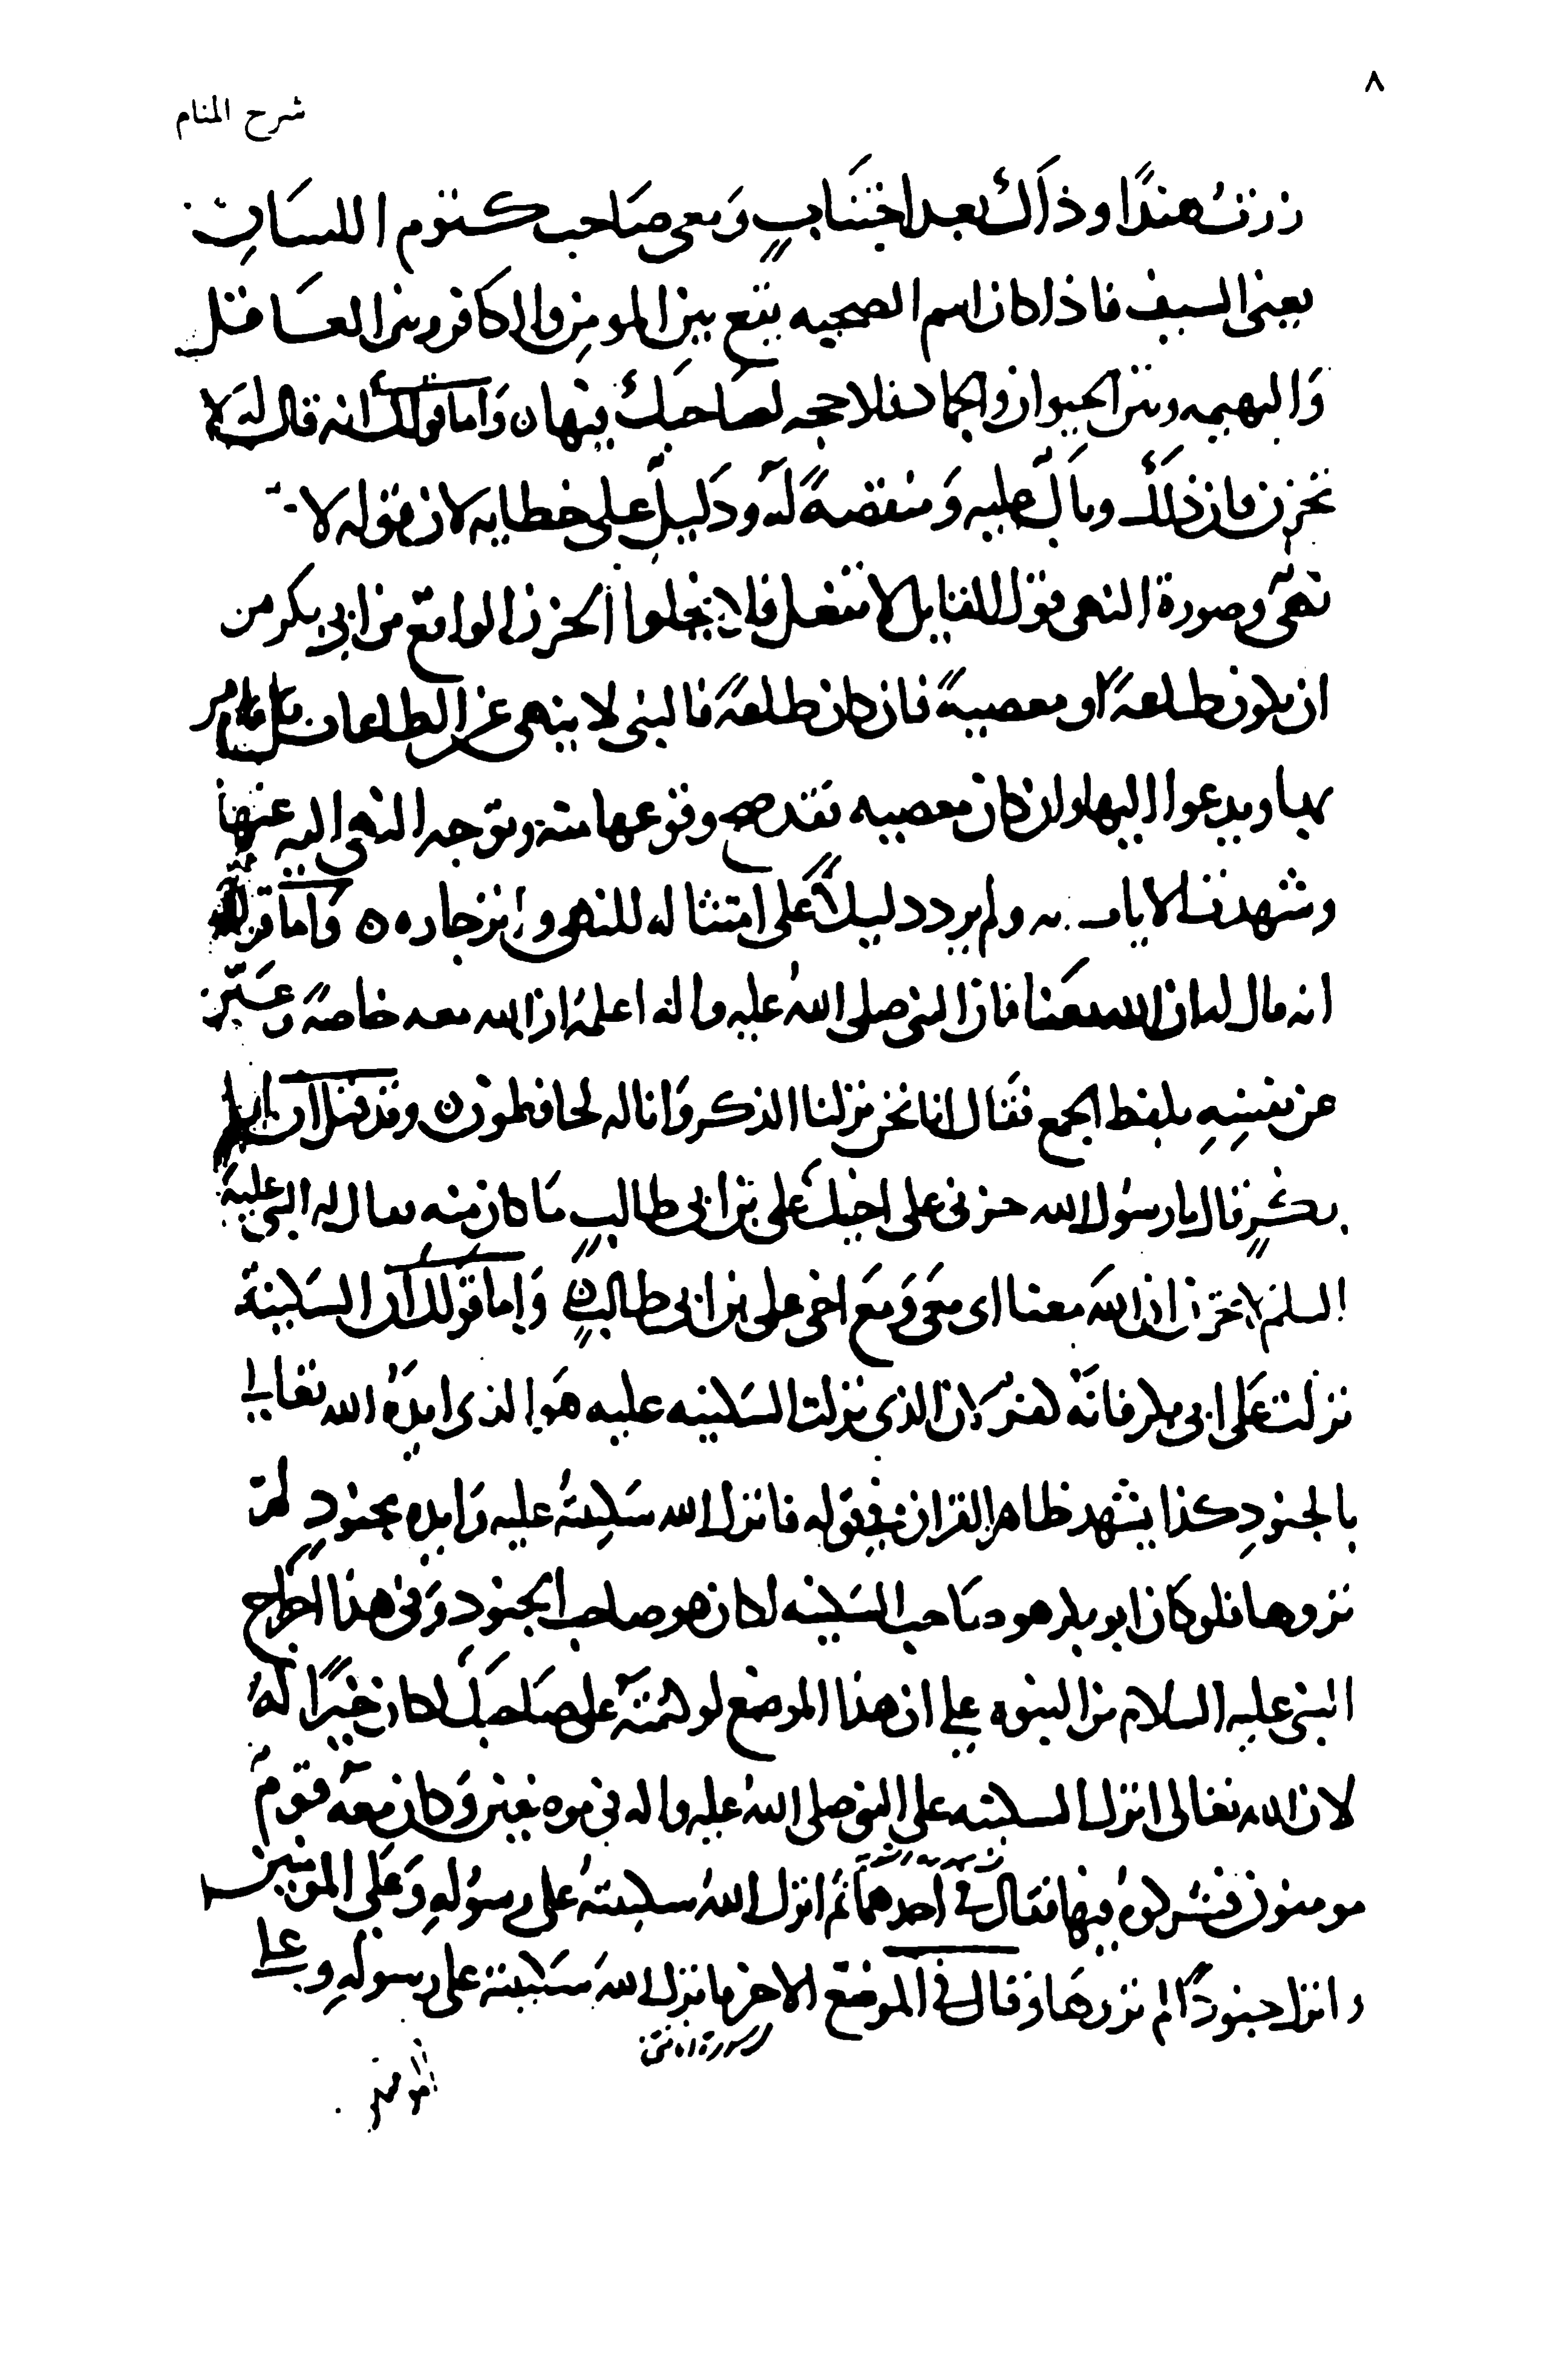 ٨
شرح المنام
زرت هندًا وذاك بعد اجتنابٍ وَمعي صَاحب كتوم اللسَانِ
يعني السيف فاذا كان اسم الصحبه يقع بين المومن والكافر وبين العَاقل
وَالبهيمه وبين الحيوان والجماد فلا حجه لصَاحبكَ فيها ن وَاما قولك انه قال له لا
تحزن فان ذلكَ وبالٌ عليه وَمنقصةً له ودَليلٌ على خطايه لان قوله لا
نهيٌ وصورة النهي قول القايل لا تفعل فلا يخلوا الحزن الواقع من ابي بكر من
ان يكون طاعةً او معصيةً فان كان طاعةً فالنبي لا ينهى عن الطاعات بل يامر
بها ويدعوا اليها وان كان معصيه فقد صح وقوعها منه وتوجه النهي اليه عنها
وشهدت الايات به ولم يرد دليلاً على امتثاله للنهي وانزجاره ن وَاما قولك
انه قال له ان الله معَنا فان النبي صلى اللهُ عليه واله اعلمُ ان الله معه خاصةً وَعبّر
عن نفسِهِ بلفظ الجمع فقال انا نحن نزلنا الذكر وَانا له لحافظون وقد قيل ان ابا
بكرٍ قال يا رسُول الله حزني على اخيكَ علي بن ابي طالبٍ مَا كان منه فقال له النبي عليه
السلم لا تحزن ان اللهَ معنا اى معَي وَمعَ اخى على بن ابى طالبٍ ن وَاما قولك ان السَكينة
نزلت عَلى ابى بكر فانهُ كفرٌ لان الذى نزلت السَكينه عليه هوَ الذى ايدهُ الله تعالى
بالجنودِ كذا يشهد ظاهر القران في قوله فانزل الله سَكينتهُ عليه وَايده بجنودٍ لم
تروها فلو كان ابو بكر هو صَاحب السَكينه لكان هو صاحب الجنود وَفي هذا اخراج
النبي عليه السلام من النبوه على ان هذا الموضع لو كتمتهُ على صَاحبكَ لكان خيرًا لهُ
لان الله تعالى انزل السكينه على النبي صلى اللهُ عليه واله في موضعين وَكان معهُ قومٌ
مومنون فشركوهُ فيها فقال في احدهما ثم انزل اللهُ سكينتهُ على رسُولهِ وَعَلى المومنين
وانزل جنودًا لم تروهَا وقال في الموضع الاخر فانزل اللهُ سَكينته على رسولهِ وعلى
المومنين